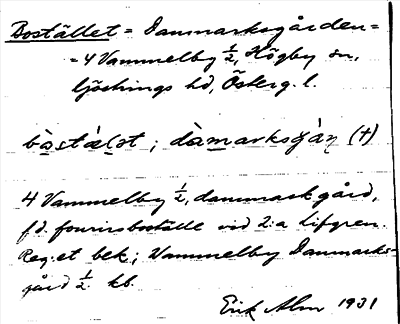 Bostället = Danmarksgården =
= 4 Vammelby ½, Högby sn,
Göstrings hd, Österg. l.
bòstálet ; dàmarksgáṇ (+)
4 Vammelby ½, danmark gård,
f.d. fourirsboställe vid 2:a lifgren.
Reg:et bek; Vammelby Danmarks-
gård ½ kb.
Erik Alm 1931